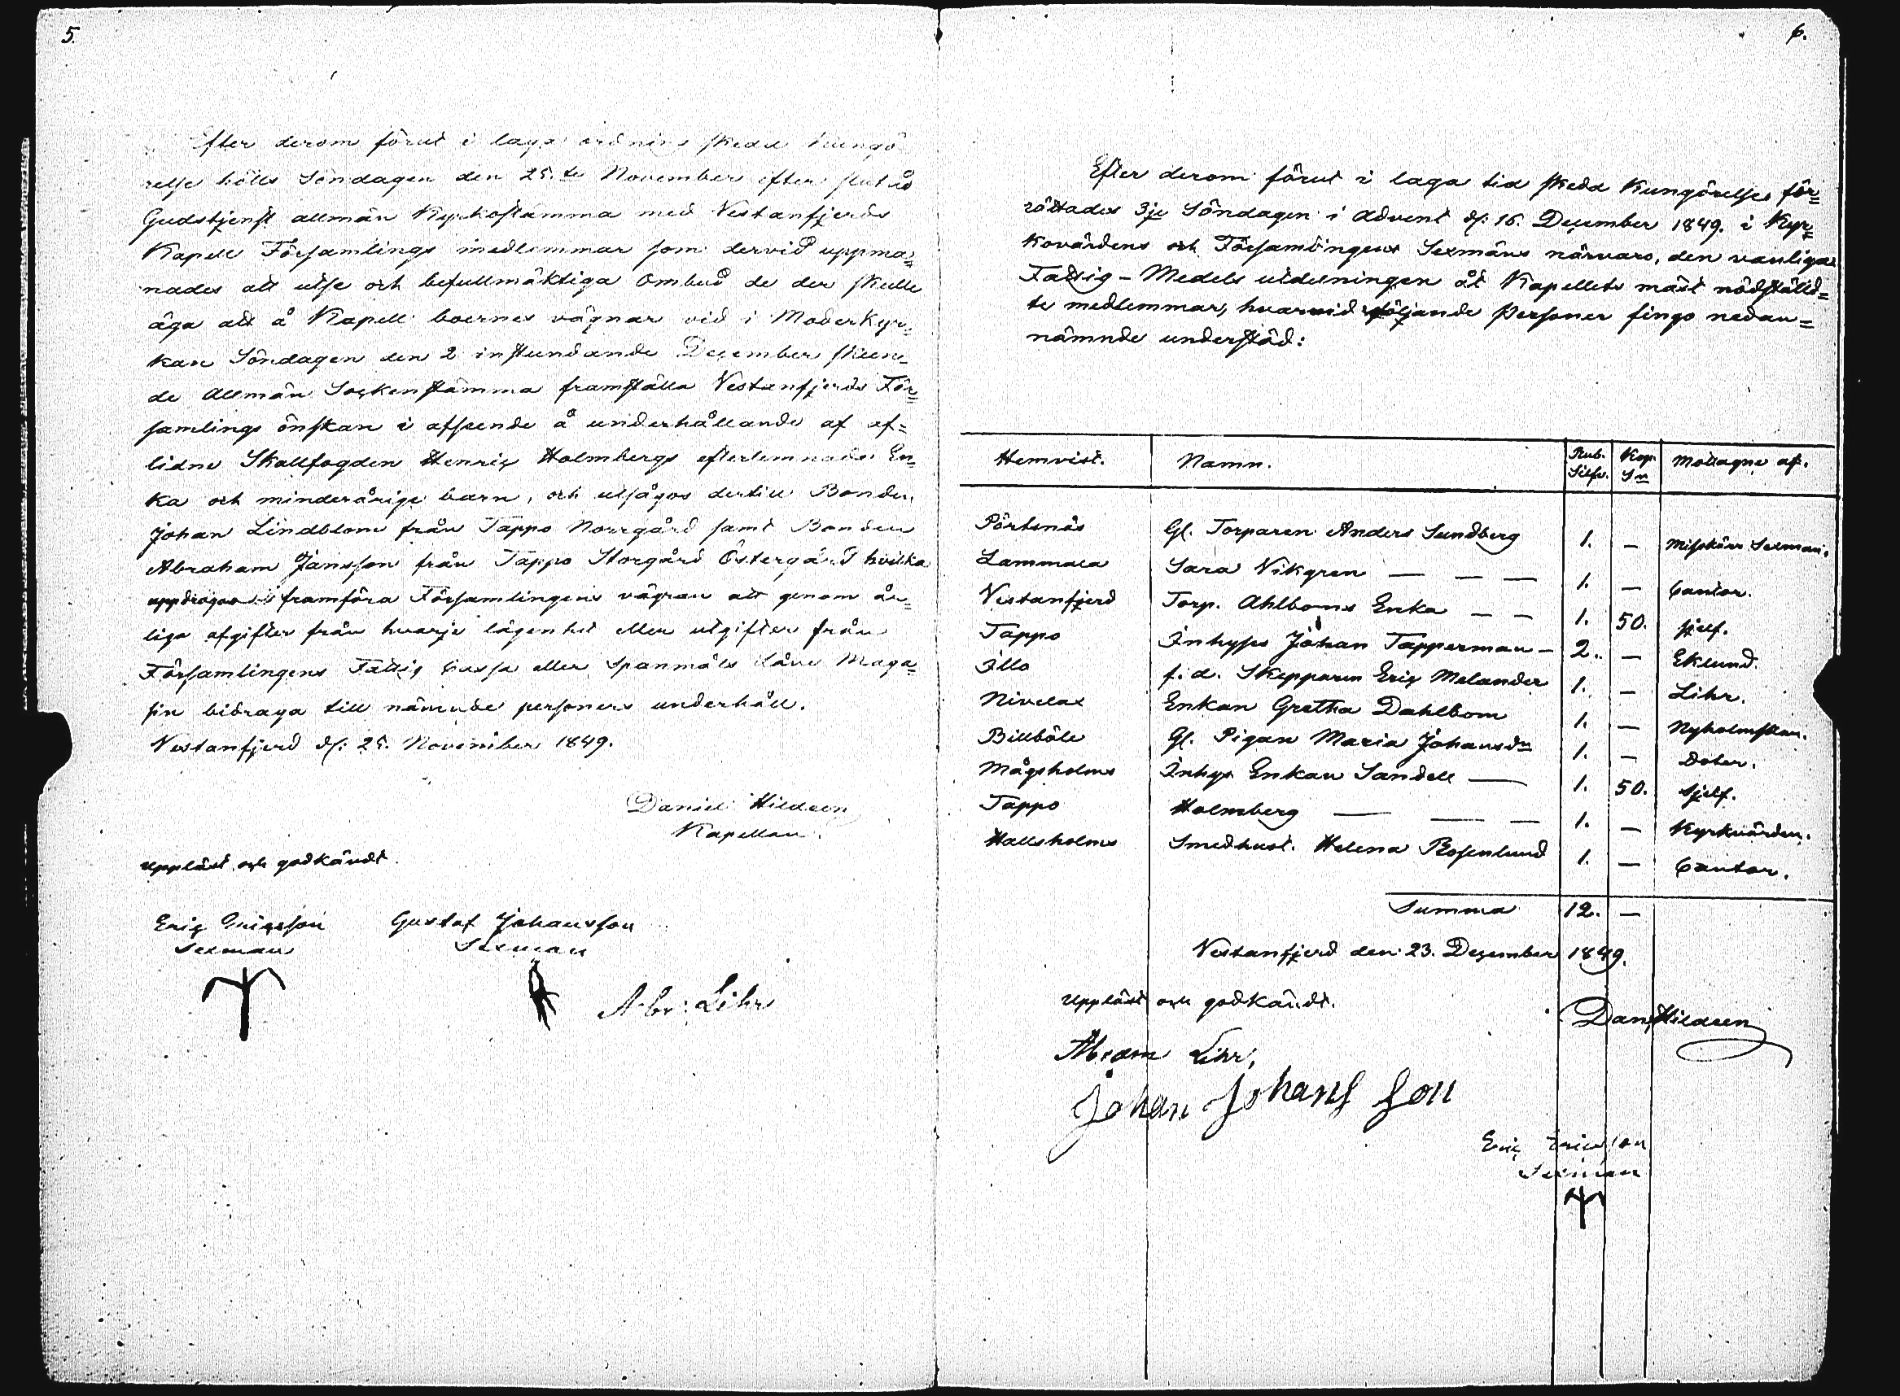 5.
Efter derom förut i laga ordning skedd kungö
relse hölls Söndagen den 25.te November efter slutad
Gudstjenst allmän Kyrkostämma med Vestanfjerds
Kapell Församlings medlemmar som dervid uppma=
nades att utse och befullmäktiga Ombud de der skulle
äga att å Kapell boernes vägnar vid i Moderkyr=
kan Söndagen den 2 instundande December skeen=
de Allmän Sockenstämma framställa Vestanfjerds För=
samlings önskan i afseende å underhållande af af=
lidne Skallfogden Henric Holmbergs efterlemnade En=
ka och minderårige barn, och utsågos dertill Bonden
Johan Lindblom från Tappo Norrgård samt Bonden
Abraham Jansson från Tappo Storgård Östergård hvilka
uppdrogos framföra Församlingens vägran att genom år=
liga afgifter från hvarje lägenhet eller utgifter från
Församlingens Fattig Cassa eller Spanmåls Låne Maga=
sin bidraga till nämnde personers underhåll.
Vestanfjerd d. 25. November 1849.
Daniel Hildeen
Kapellan.
Uppläst och godkändt.
Eric Ericsson Gustaf Johansson
Sexman Sexman
Abr: Lihr
6.
Efter derom förut i laga tid skedd Kungörelse för=
rättades 3je Söndagen i Advent d. 16. December 1849. i Kyr=
kovärdens och Församlingens Sexmäns närvaro, den vanliga
Fattig-Medels utdelningen åt Kapellets mäst nödställd=
te medlemmar, hvarvid följande Personer fingo nedan=
nämnde understöd:
Hemvist. Namn. Rub. Silfr. Kop. Sr Mottagne af.
Pörtsnäs Gl. Torparen Anders Sundberg 1. — Misskärs Sexman.
Lammala Sara Vikgren — — — 1. — Cantor.
Vestanfjerd Torp. Ahlboms Enka — — 1. 50. sjelf.
Tappo Inhyses Johan Tapperman — 2. — Eklund.
Illo f.d. Skepparen Eric Melander 1. — Lihr.
Nivelax Enkan Gretha Dahlbom 1. — Nyholmskan.
Billböle Gl. Pigan Maria Johansdr 1. — Doter.
Mågsholms Inhys Enkan Sandell — 1. 50. sjelf.
Tappo Holmberg — — — 1. — Kyrkvärden.
Hallsholms Smedhust. Helena Rosenlund 1. — Cantor.
Summa 12. —
Vestanfjerd den 23. December 1849.
Uppläst och godkändt.
Dan. Hildeen
Abram Lihr,
Johan Johansson
Eric Ericsson
Sexman